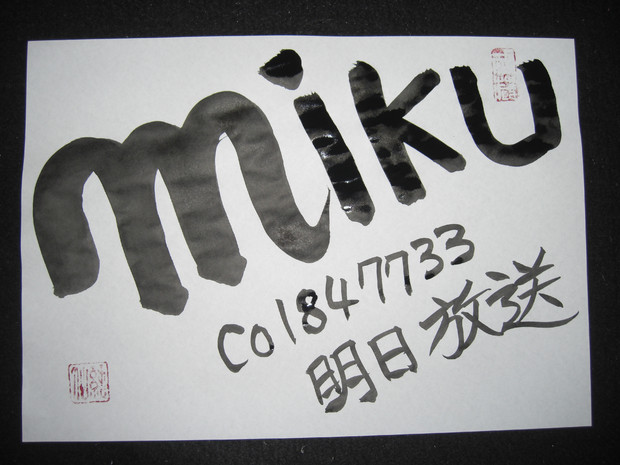 miku
co1847733
明日放送